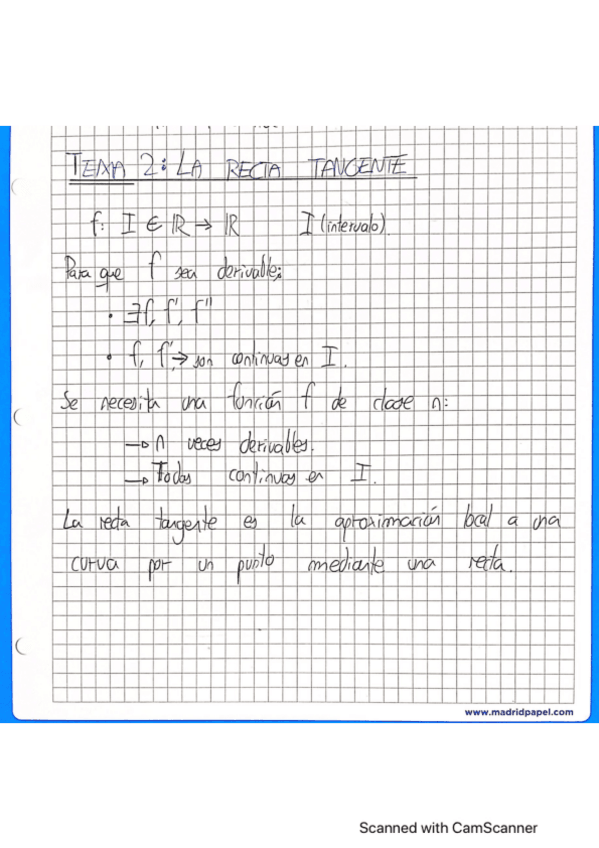 TEMA 2: LA RECTA TANGENTE
f: I ∈ ℝ → ℝ I (intervalo)
Para que f sea derivable:
• ∃f, f', f''
• f, f' → son continuas en I.
Se necesita una función f de clase n:
→ n veces derivables.
→ Todas continuas en I.
La recta tangente es la aproximación local a una
curva por un punto mediante una recta.
www.madridpapel.com
Scanned with CamScanner